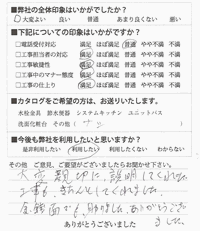 ■弊社の全体印象はいかがでしたか？
大変よい 良い 普通 あまり良くない 悪い
■下記についての印象はいかがですか？
電話受付対応 満足 ほぼ満足 普通 やや不満 不満
工事担当者の対応 満足 ほぼ満足 普通 やや不満 不満
工事敏捷性 満足 ほぼ満足 普通 やや不満 不満
工事中のマナー態度 満足 ほぼ満足 普通 やや不満 不満
工事の仕上り 満足 ほぼ満足 普通 やや不満 不満
■カタログをご希望の方は、お送りいたします。
水栓金具 節水便器 システムキッチン ユニットバス
洗面化粧台 その他（
■今後も弊社を利用したいと思いますか？
是非利用したい 利用したい 利用したくない わからない
その他 ご意見、ご要望がございましたらお聞かせ下さい。
大変親切に説明してくれた。
工事も、きちんとしてくれました。
金額面でも、助かりました。ありがとうござい
ました。
ありがとうございました